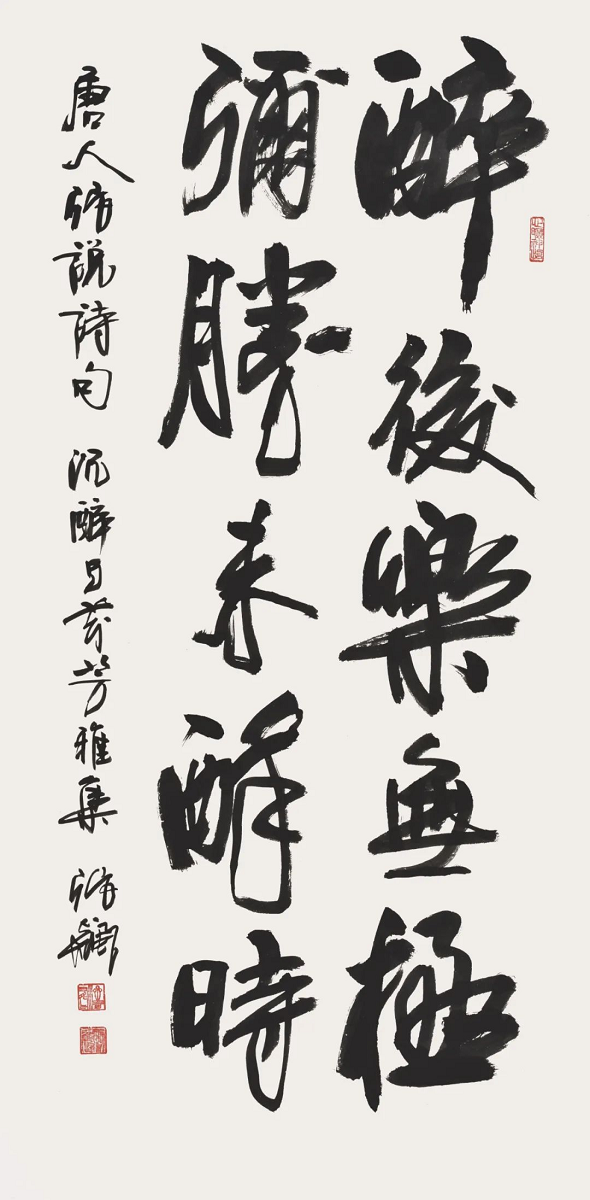 醉後樂無極
彌勝未醉時
唐人張說詩句 沉醉 芬芳雅集 張